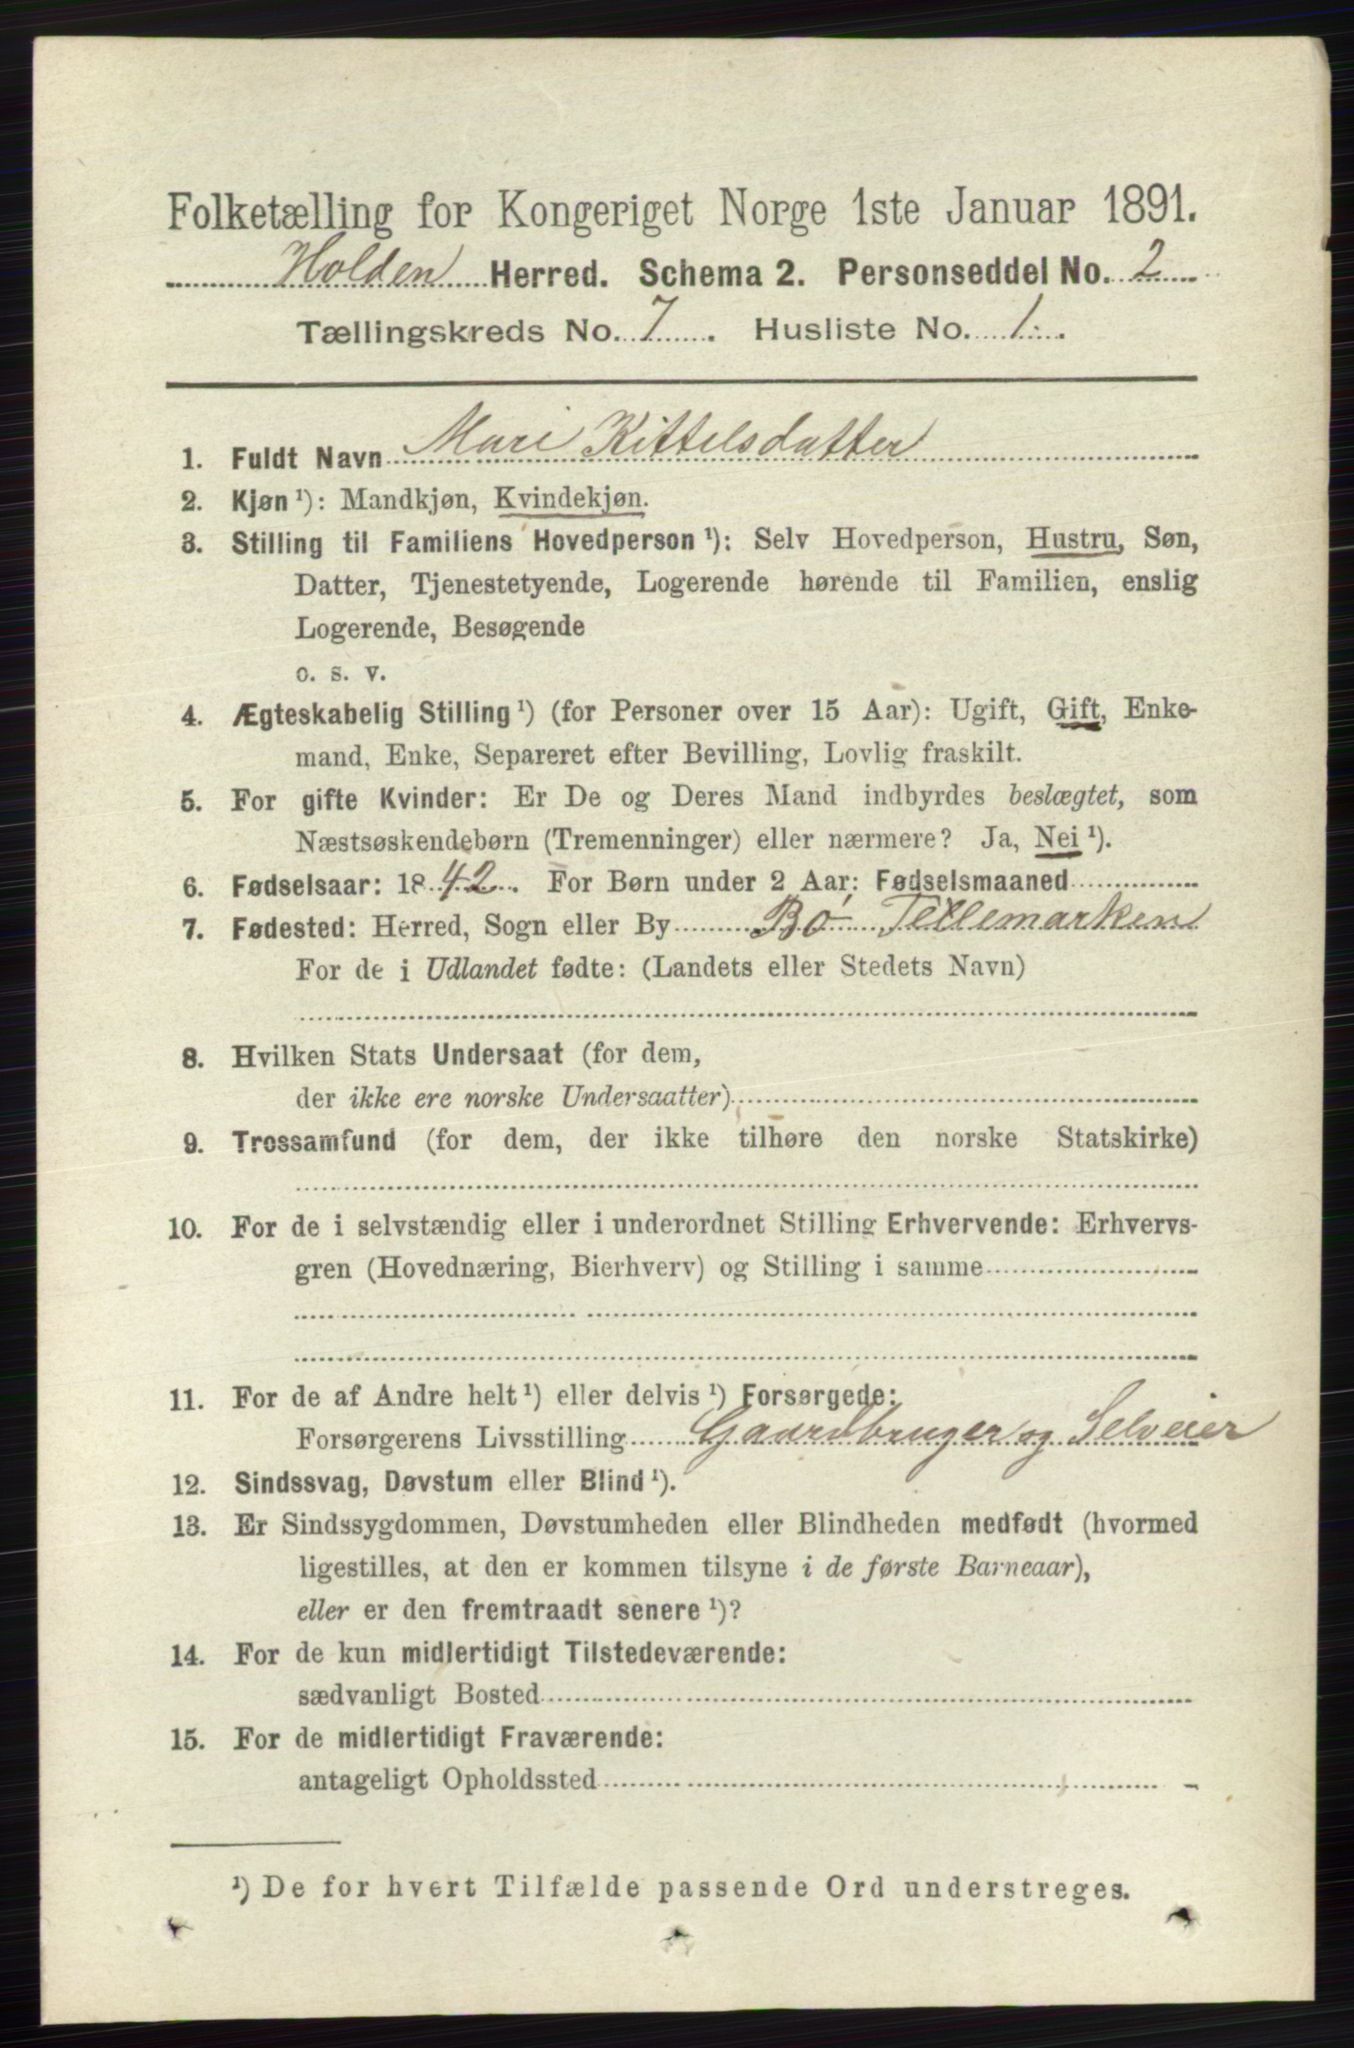 Folketælling for Kongeriget Norge 1ste Januar 1891.
Holden Herred. Schema 2. Personseddel No. 2
Tællingskreds No. 7. Husliste No. 1.
1. Fuldt Navn Mari Kittelsdatter
2. Kjøn ¹): Mandkjøn, Kvindekjøn.
3. Stilling til Familiens Hovedperson ¹): Selv Hovedperson, Hustru, Søn,
Datter, Tjenestetyende, Logerende hørende til Familien, enslig
Logerende, Besøgende
o. s. v.
4. Ægteskabelig Stilling ¹) (for Personer over 15 Aar): Ugift, Gift, Enke-
mand, Enke, Separeret efter Bevilling, Lovlig fraskilt.
5. For gifte Kvinder: Er De og Deres Mand indbyrdes beslægtet, som
Næstsøskendebørn (Tremenninger) eller nærmere? Ja, Nei ¹).
6. Fødselsaar: 1842. For Børn under 2 Aar: Fødselsmaaned
7. Fødested: Herred, Sogn eller By Bø Tellemarken
For de i Udlandet fødte: (Landets eller Stedets Navn)
8. Hvilken Stats Undersaat (for dem,
der ikke ere norske Undersaatter)
9. Trossamfund (for dem, der ikke tilhøre den norske Statskirke)
10. For de i selvstændig eller i underordnet Stilling Erhvervende: Erhvervs-
gren (Hovednæring, Bierhverv) og Stilling i samme
11. For de af Andre helt ¹) eller delvis ¹) Forsørgede:
Forsørgerens Livsstilling Gaardbruger og Selveier
12. Sindssvag, Døvstum eller Blind ¹).
13. Er Sindssygdommen, Døvstumheden eller Blindheden medfødt (hvormed
ligestilles, at den er kommen tilsyne i de første Barneaar),
eller er den fremtraadt senere ¹)?
14. For de kun midlertidigt Tilstedeværende:
sædvanligt Bosted
15. For de midlertidigt Fraværende:
antageligt Opholdssted
¹) De for hvert Tilfælde passende Ord understreges.